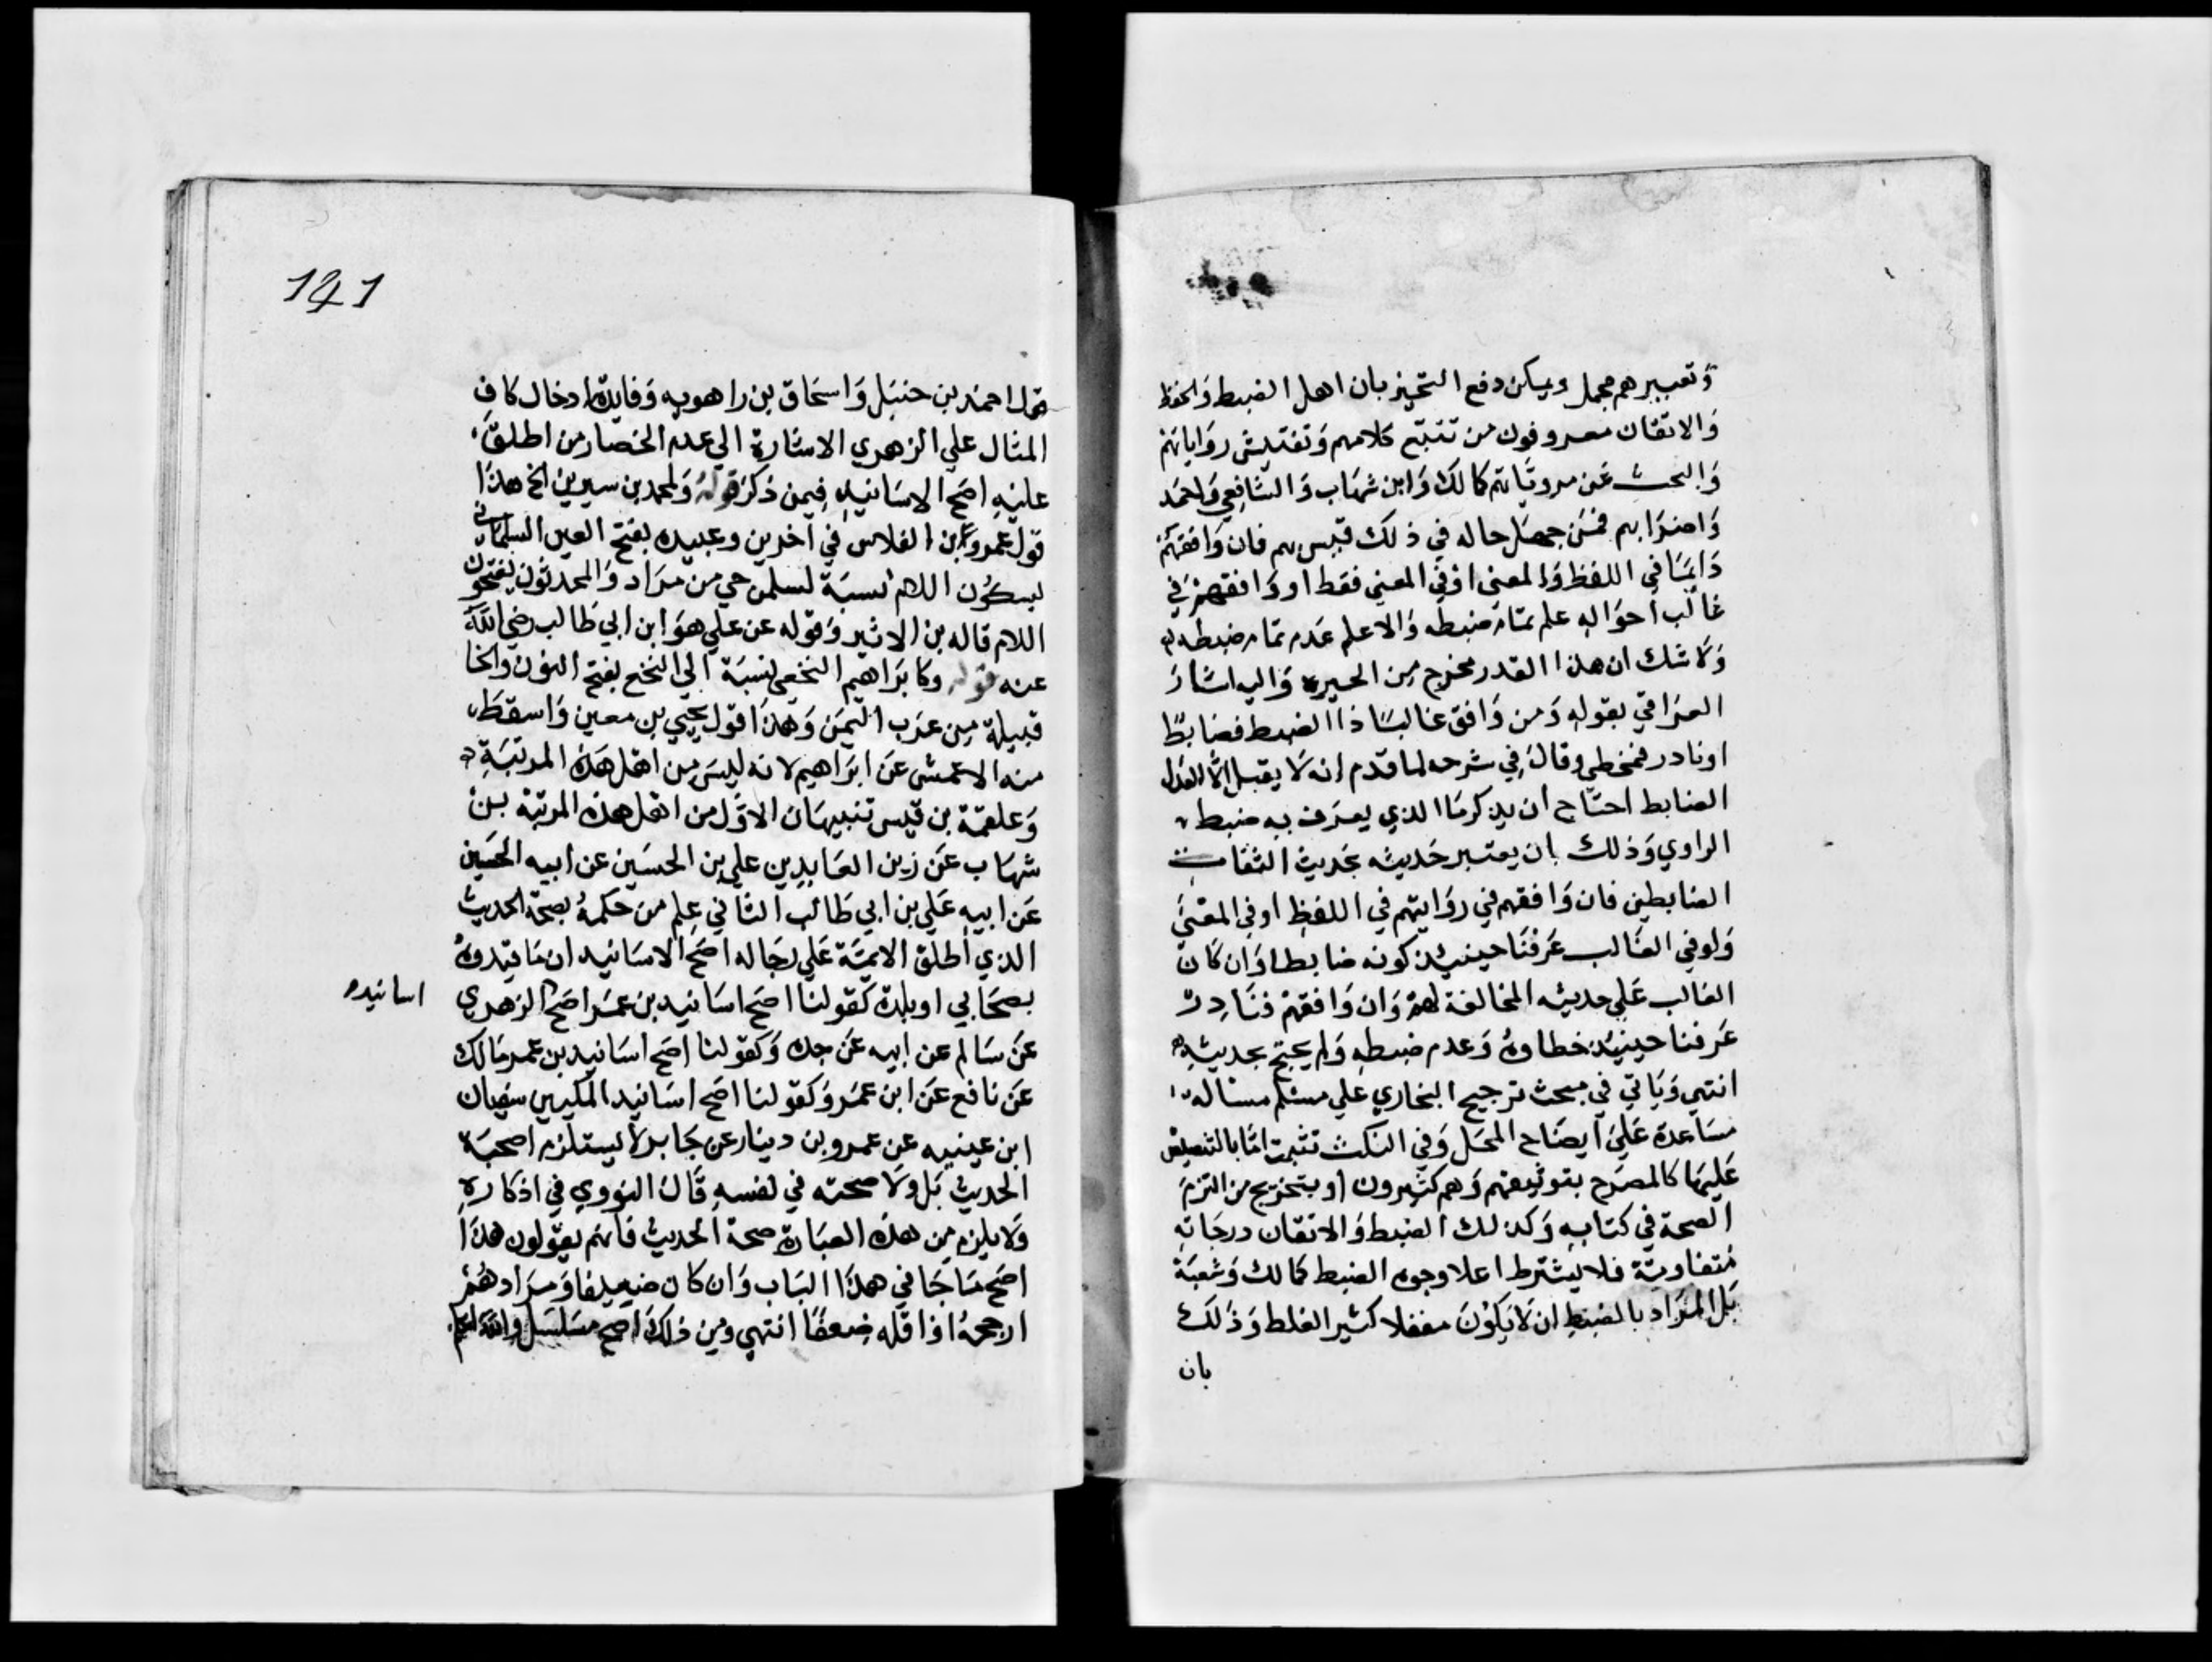 وتعبيرهم مجمل ويمكن دفع التحيز بان اهل الضبط والحفظ
والاتقان معروفون من تتبع كلامهم وتفتيش رواياتهم
والبحث عن مروياتهم كمالك وابن شهاب والشافعي واحمد
واضرابهم فمن جهل حاله في ذلك قيس بهم فان وافقهم
دايما في اللفظ والمعنى او في المعنى فقط او وافقهم في
غالب احواله علم تمام ضبطه والا علم عدم تمام ضبطه
ولا شك ان هذا القدر مخرج من الحيرة واليه اشار
العراقي بقوله ومن وافق غالبا ذا الضبط فضابط
او نادر فمخطي وقال في شرحه لما قدم انه لا يقبل الا العدل
الضابط احتاج ان يذكر ما الذي يعرف به ضبط
الراوي وذلك بان يعتبر حديثه بحديث الثقات
الضابطين فان وافقهم في روايتهم في اللفظ او في المعنى
ولو في الغالب عرفنا حينيذ كونه ضابطا وان كان
الغالب على حديثه المخالفة لهم وان وافقهم فنادر
عرفنا حينيذ خطاوه وعدم ضبطه ولم يحتج بحديثه
انتهى وياتي في مبحث ترجيح البخاري علي مسلم مساله
مساعدة علي ايضاح المحل وفي النكت تثبت اما بالتنصيص
عليها كالمصرح بتوثيقهم وهم كثيرون او بتخريج من التزم
الصحة في كتابه وكذلك الضبط والاتقان درجاته
متفاوتة فلا يشترط اعلا وجوه الضبط كمالك وشعبة
بل المراد بالضبط ان لا يكون مغفلا كثير الغلط وذلك
بان
141
قول احمد بن حنبل واسحاق بن راهويه وفايدة ادخال كاف
المثال علي الزهري الاشارة الى عدم انحصار من اطلق
عليه اصح الاسانيد فيمن ذكر قوله ولمحمد بن سيرين الخ هذا
قول عمرو بن الفلاس في اخرين وعبيده بفتح العين السلماني
بسكون اللام نسبة لسلمن حي من مراد والمحدثون يفتحون
اللام قاله بن الاثير وقوله عن علي هو ابن ابي طالب رضي الله
عنه قوله وكابراهيم النخعي نسبة الي النخع بفتح النون والخا
قبيلة من عرب اليمن وهذا قول يحيي بن معين واسقط
منه الاعمش عن ابراهيم لانه ليس من اهل هذه المرتبة
وعلقمة بن قيس تنبيهان الاول من اهل هذه المرتبة بن
شهاب عن زين العابدين علي بن الحسين عن ابيه الحسين
عن ابيه علي بن ابي طالب الثاني علم من حكمه بصحة الحديث
الذي اطلق الايمة علي رجاله اصح الاسانيد ان ما قيدوه
بصحابي او بلدة كقولنا اصح اسانيد بن عمر اصح الزهري
اسانيده
عن سالم عن ابيه عن جده وكقولنا اصح اسانيد بن عمر مالك
عن نافع عن ابن عمر وكقولنا اصح اسانيد المكيين سفيان
ابن عيينيه عن عمرو بن دينار عن جابر لا يستلزم اصحية
الحديث بل ولا صحته في نفسه قال النووي في اذكاره
ولا يلزم من هذه العبارة صحة الحديث فانهم يقولون هذا
اصح ما جا في هذا الباب وان كان ضعيفا ومرادهم
ارجحه او اقله ضعفا انتهى ومن ذلك اصح مسلسل والله اعلم